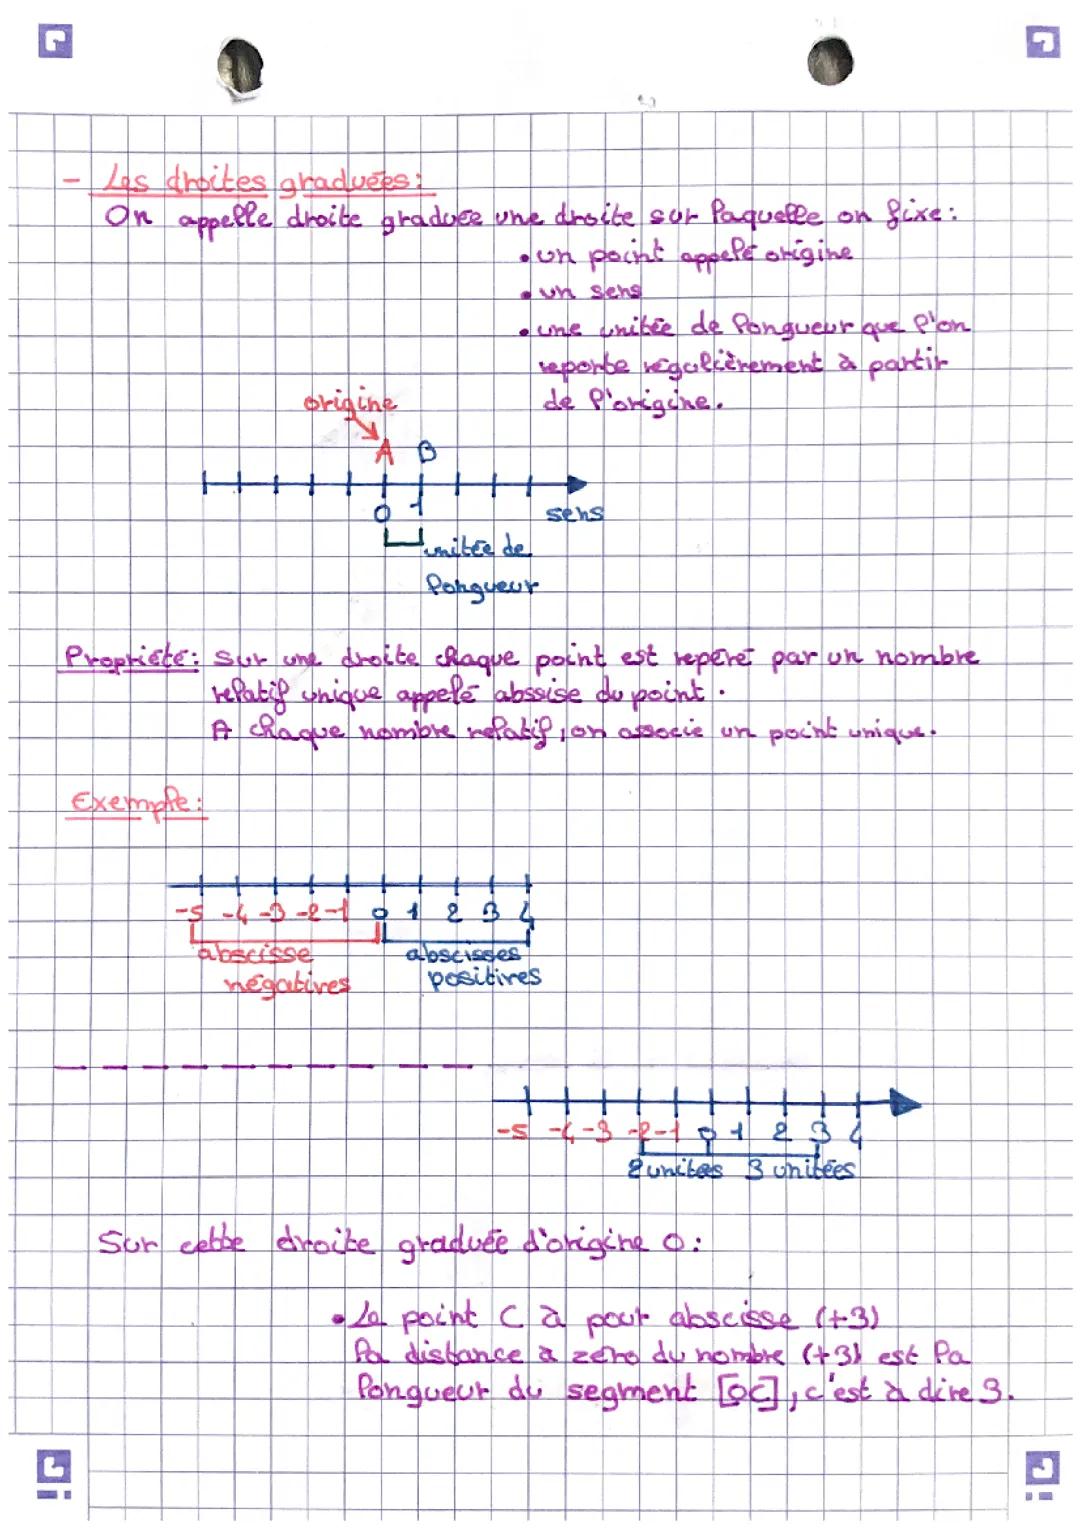 - Les droites graduées:
On appelle droite graduée une droite sur laquelle on fixe:
• un point appelé origine
• un sens
• une unitée de longueur que l'on
reporte régulièrement à partir
de l'origine.
origine
A B
0 1
sens
unitée de
longueur
Propriété: Sur une droite chaque point est reperé par un nombre
relatif unique appelé abssise du point.
A chaque nombre relatif, on associe un point unique.
Exemple:
-5 -4 -3 -2 -1 0 1 2 3 4
abscisse abscisses
négatives positives
-5 -4 -3 -2 -1 0 1 2 3 4
2 unitées 3 unitées
Sur cette droite graduée d'origine 0:
• Le point C à pour abscisse (+3)
la distance a zéro du nombre (+3) est la
longueur du segment [OC], c'est à dire 3.